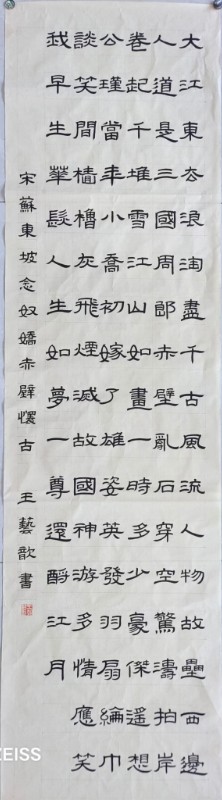 大江東去浪淘盡千古風流人物故壘西邊
人道是三國周郎赤壁亂石穿空驚濤拍岸
卷起千堆雪江山如畫一時多少豪傑遙想
公瑾當年小喬初嫁了雄姿英發羽扇綸巾
談笑間檣櫓灰飛煙滅故國神游多情應笑
我早生華髮人生如夢一尊還酹江月
宋蘇東坡念奴嬌赤壁懷古 王藝歆書
EISS